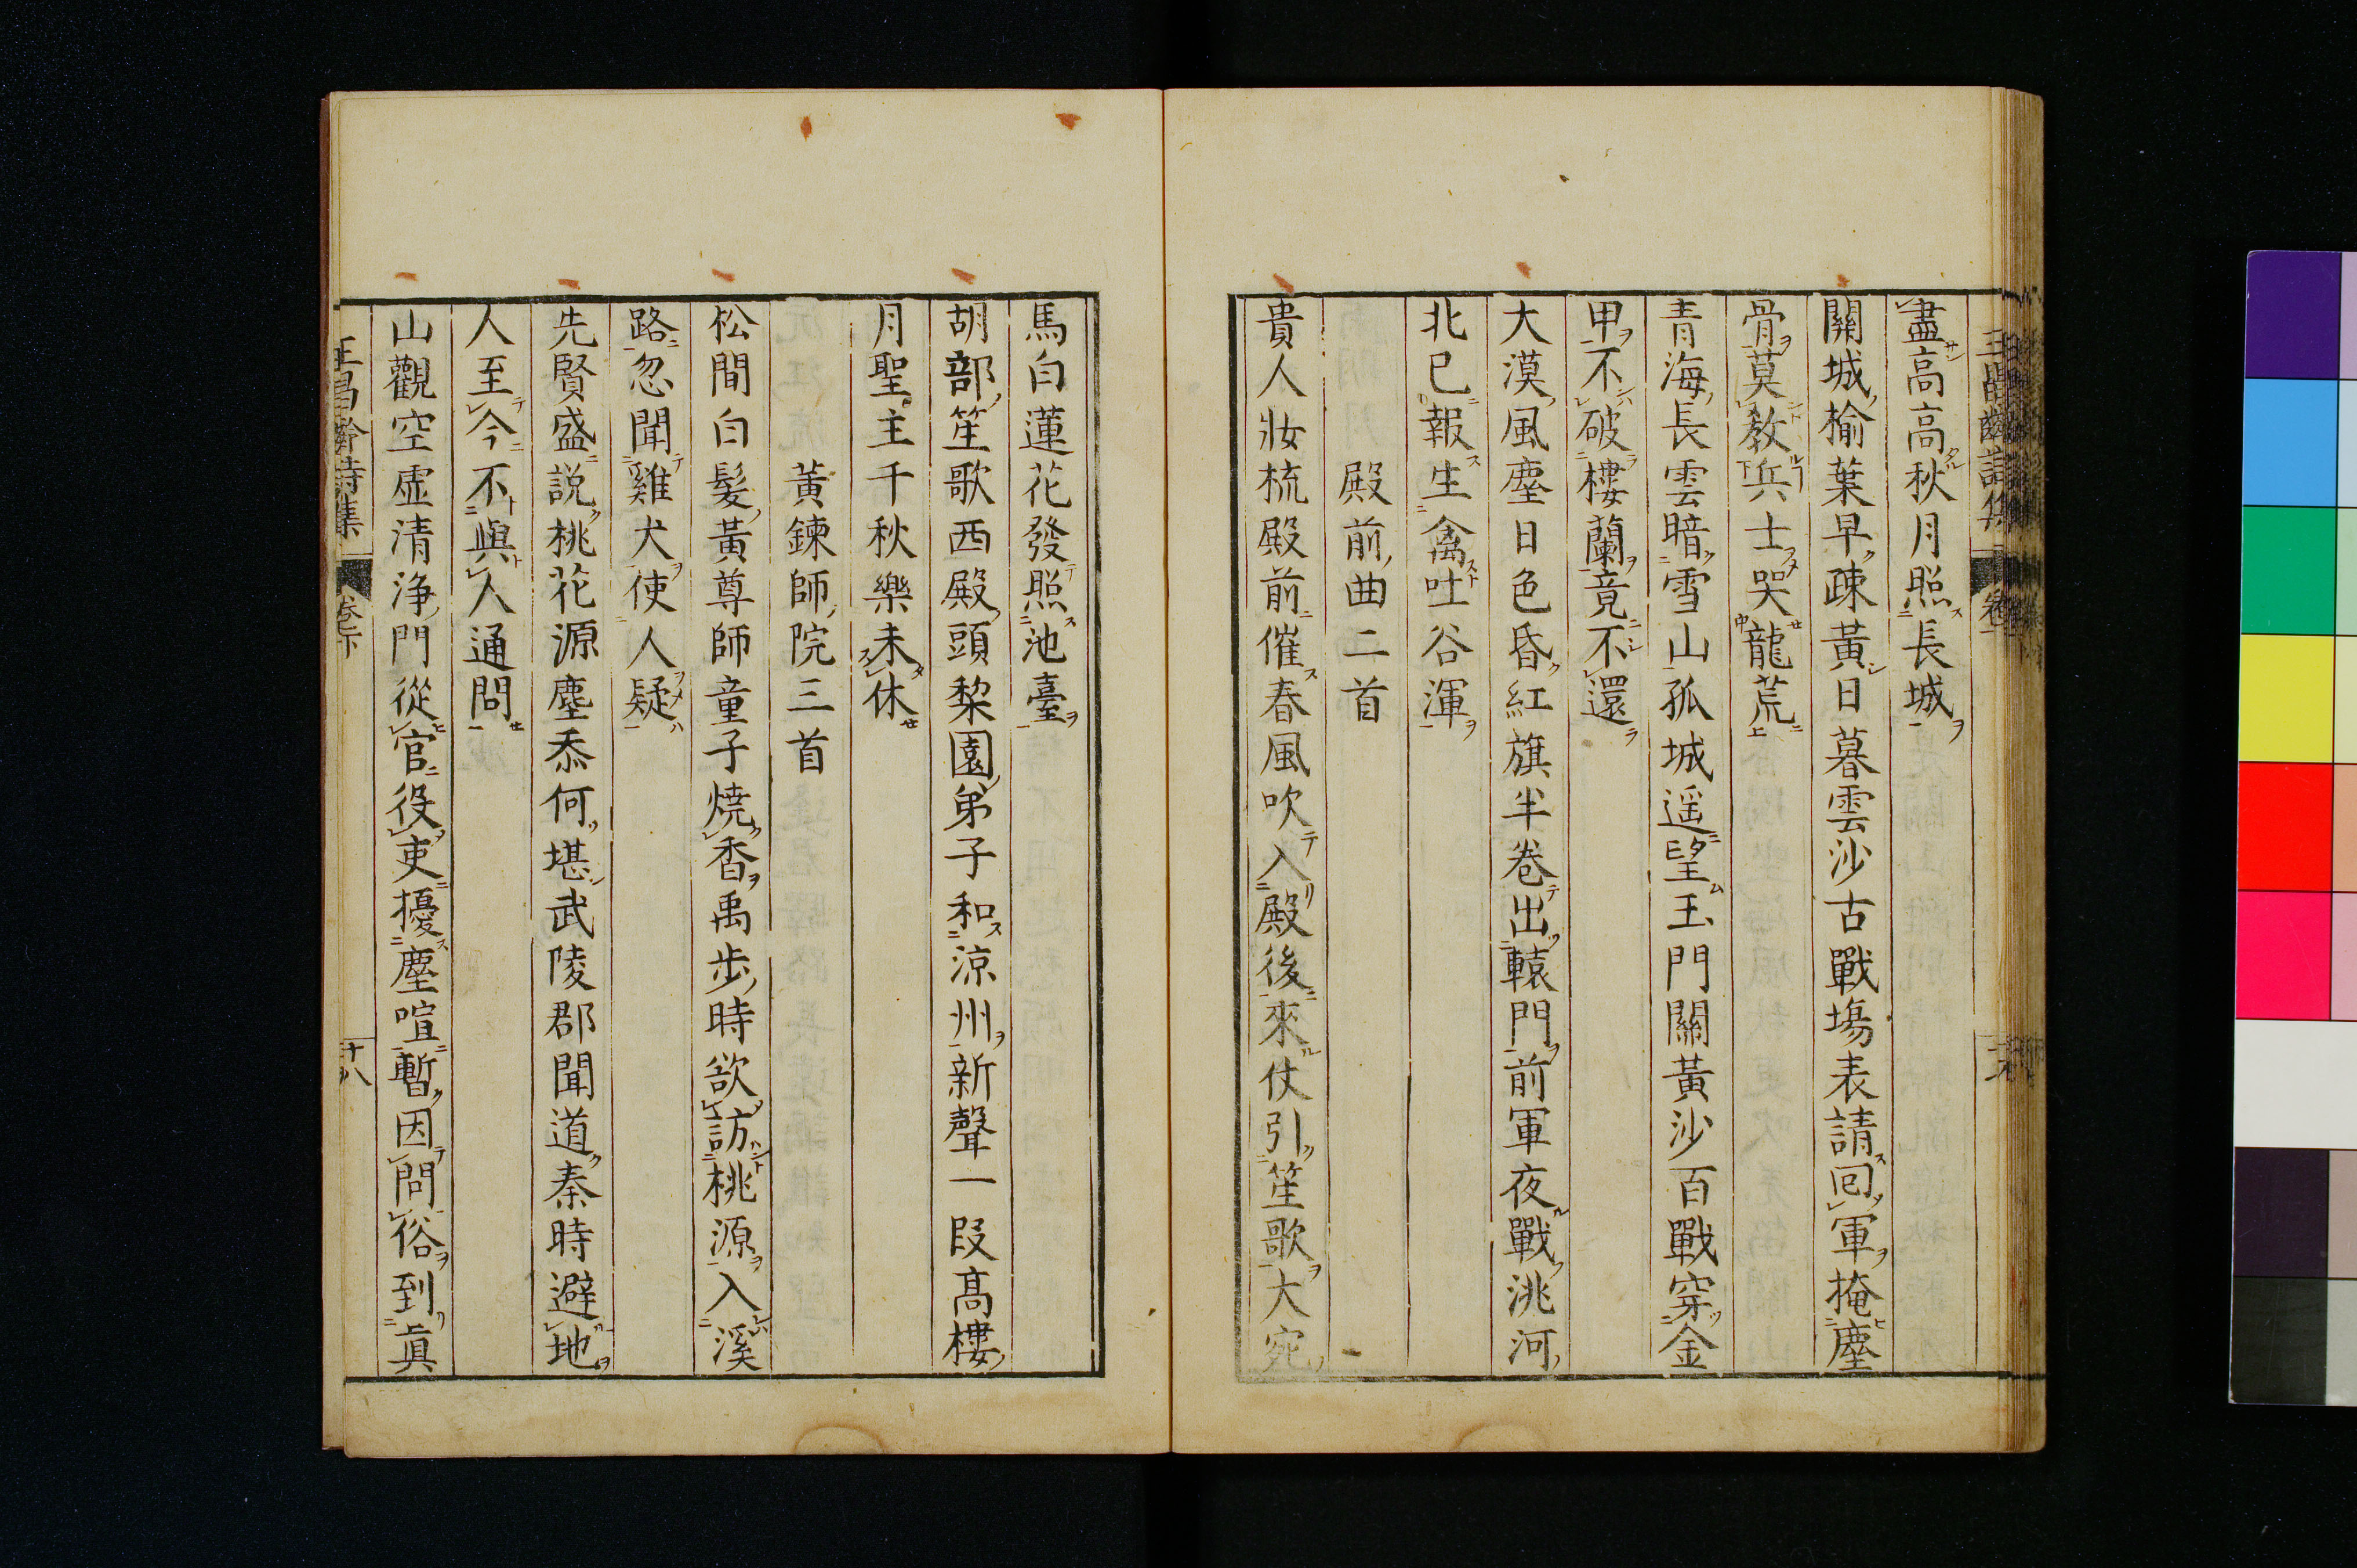 盡高高秋月照長城
關城榆葉早疎黃日暮雲沙古戰塲表請回軍掩塵
骨莫教兵士哭龍荒
青海長雲暗雪山孤城遥望玉門關黃沙百戰穿金
甲不破樓蘭竟不還
大漠風塵日色昏紅旗半卷出轅門前軍夜戰洮河
北已報生禽吐谷渾
殿前曲二首
貴人妝梳殿前催春風吹入殿後來仗引笙歌大宛
馬白蓮花發照池臺
胡部笙歌西殿頭棃園弟子和涼州新聲一段髙樓
月聖主千秋樂未休
黃鍊師院三首
松間白髮黃尊師童子燒香禹步時欲訪桃源入溪
路忽聞雞犬使人疑
先賢盛説桃花源塵忝何堪武陵郡聞道秦時避地
人至今不與人通問
山觀空虛清浄門從官役吏擾塵喧暫因問俗到真
王昌齡詩集 卷下 十八